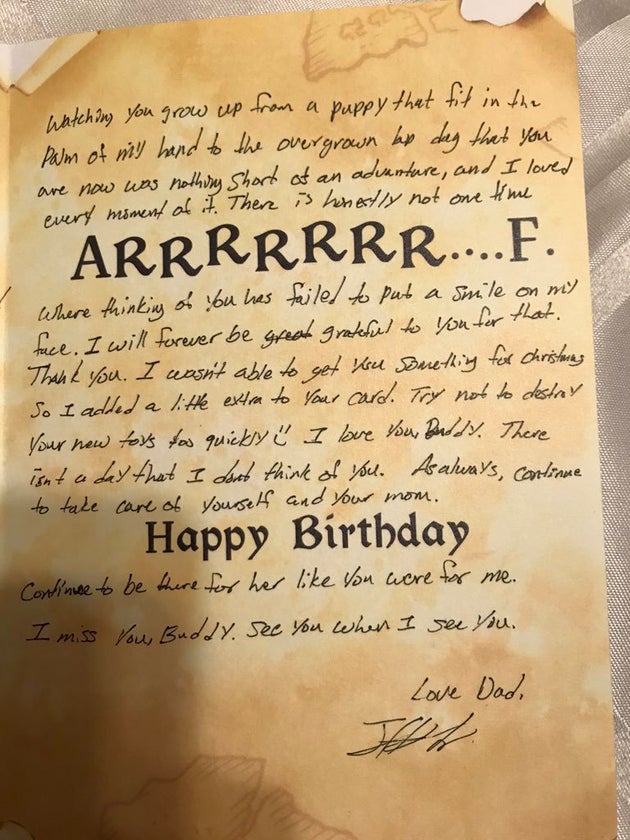 Watching you grow up from a puppy that fit in the
palm of my hand to the overgrown lap dog that you
are now was nothing short of an adventure, and I loved
every moment of it. There is honestly not one time
ARRRRRRR....F.
Where thinking of you has failed to put a smile on my
face. I will forever be great grateful to you for that.
Thank you. I wasn't able to get you something for christmas
So I added a little extra to your card. Try not to destroy
your new toys too quickly I love you, Buddy. There
isnt a day that I dont think of you. As always, continue
to take care of yourself and your mom.
Happy Birthday
Continue to be there for her like you were for me.
I miss you, Buddy. See you when I see you.
Love Dad,